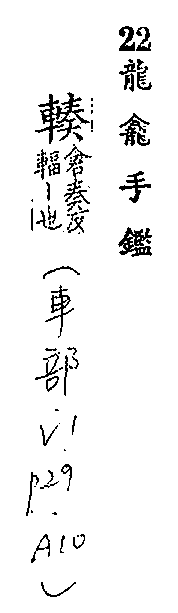 22龍龕手鑑
輳倉奏反輻丨也
(車部.V1.p29.A10)